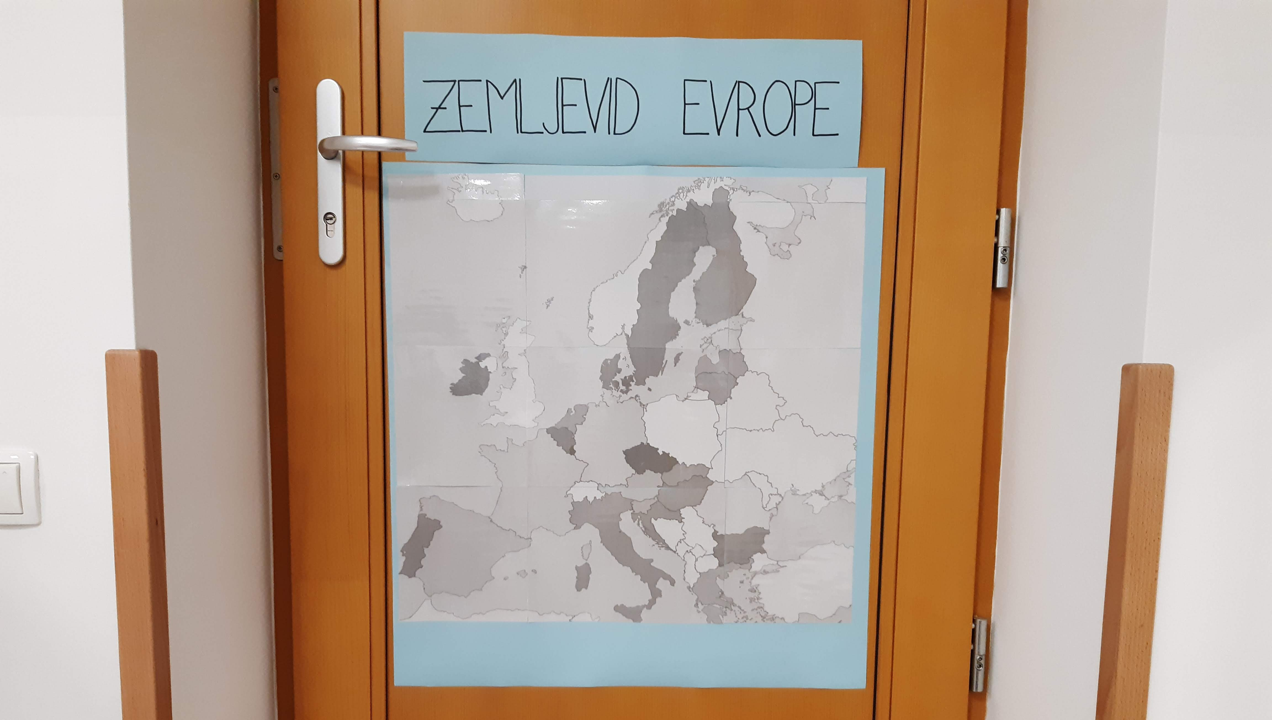 ZEMLJEVID EVROPE